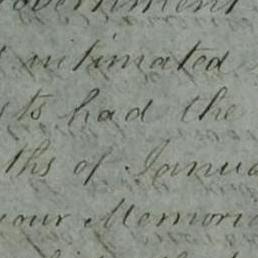 overnment
intimated
sts had the
ths of Janua
our Memoria